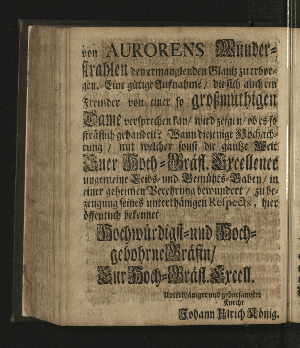 von AURORENS Wunder-
strahlen den ermanglenden Glantz zu erbor-
gen. Eine gütige Aufnahme / die sich auch ein
Fremder von einer so großmüthigen
Dame versprechen kan / wird zeigen / ob es so
sträflich gehandelt: Wann diejenige Hochach-
tung / mit welcher sonst die gantze Welt
Euer Hoch-Gräfl. Excellence
ungemeine Leibs- und Gemüths-Gaben / in
einer geheimen Verehrung bewundert / zu be-
zeugung seines unterthänigen Respects, hier
öffentlich bekennet
Hochwürdigst- und Hoch-
gebohrne Gräfin /
Eur Hoch-Gräfl. Excell.
Unterthäniger und gehorsamster
Knecht
Johann Ulrich König.